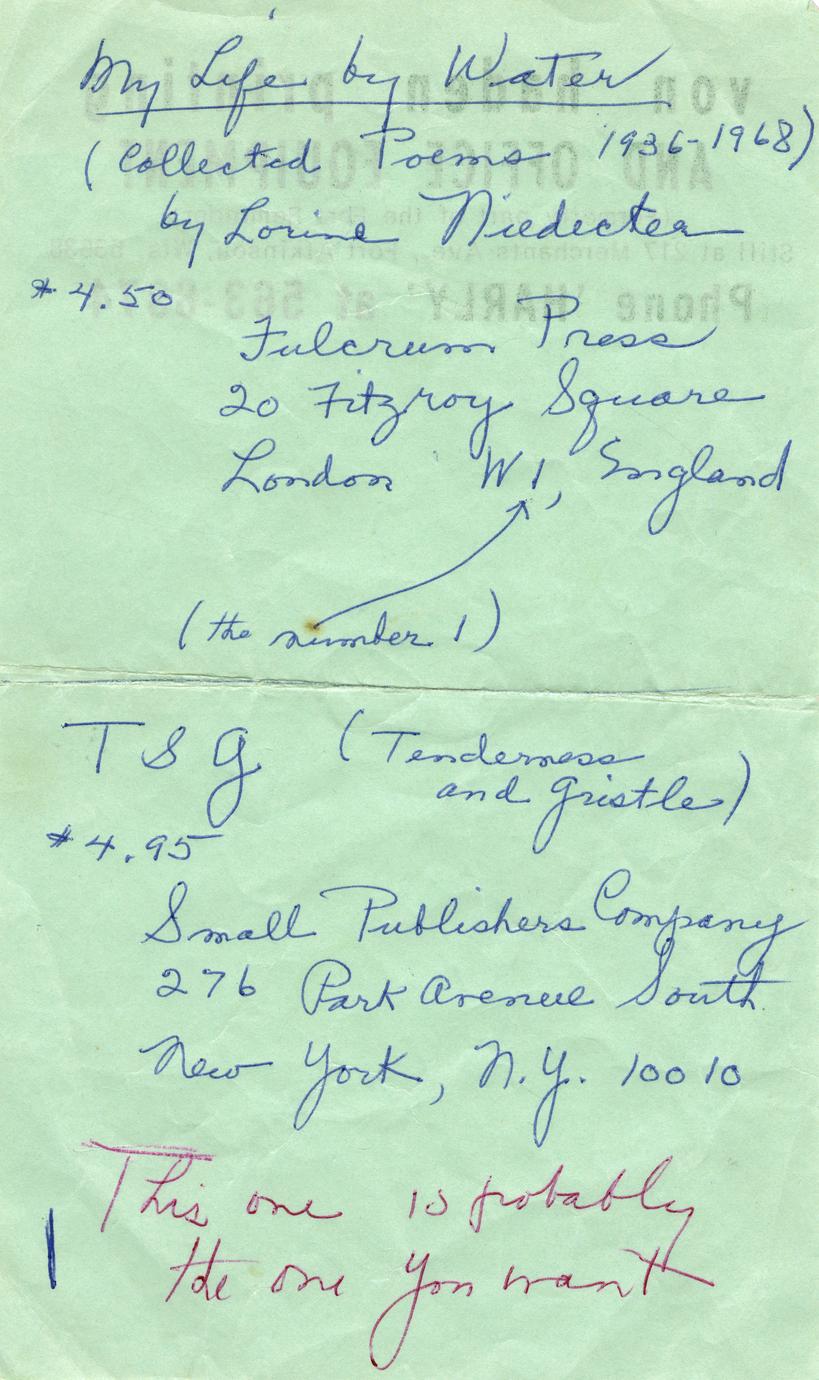 My Life by Water
(Collected Poems 1936-1968)
by Lorine Niedecker
$4.50
Fulcrum Press
20 Fitzroy Square
London W1, England
(the number 1)
T & G (Tenderness
and Gristle)
$4.95
Small Publishers Company
276 Park Avenue South
New York, N.Y. 10010
This one is probably
the one you want
von haden printing
AND OFFICE EQUIPMENT
Still at 217 Merchants Ave., Fort Atkinson, Wis. 53538
Phone 'HARLY' at 563-